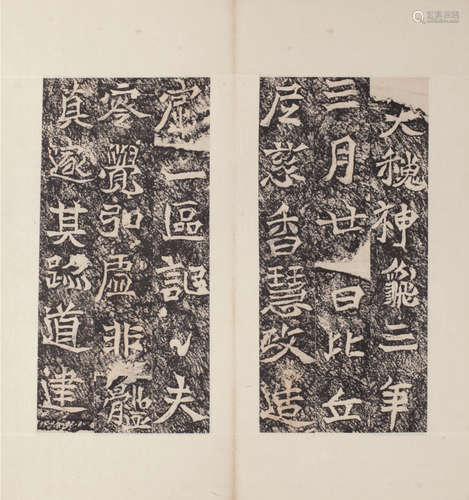 大魏神龜三年
三月廿日比丘
尼慈香慧政造
窟一區記之夫
零覺弘虛非體
真邃其跡道建